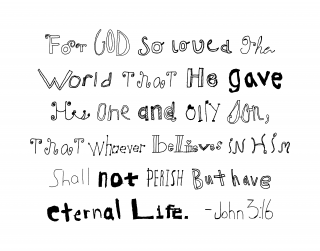 For GOD so loved the
World that He gave
His One and only Son,
that whoever believes in Him
Shall not PERISH But have
eternal Life. -John 3:16